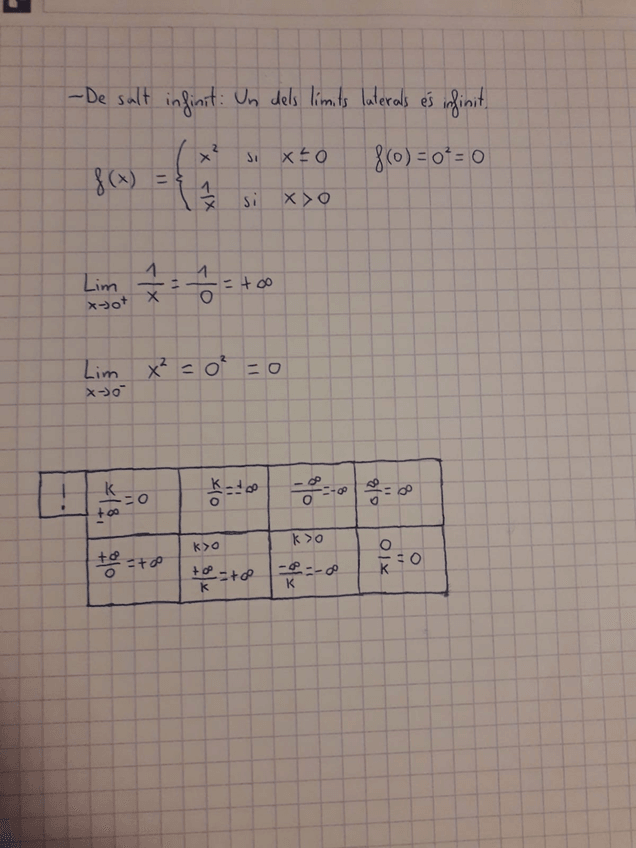 -De salt infinit: Un dels límits laterals és infinit.
f(x) = { x² si x ≤ 0 f(0) = 0² = 0
1/x si x > 0
Lim x→0⁺ 1/x = 1/0 = +∞
Lim x→0⁻ x² = 0² = 0
! K/±∞ = 0 K/0 = ±∞ -∞/0 = -∞ ∞/0 = ∞
+∞/0 = +∞ K>0 +∞/K = +∞ K>0 -∞/K = -∞ 0/K = 0